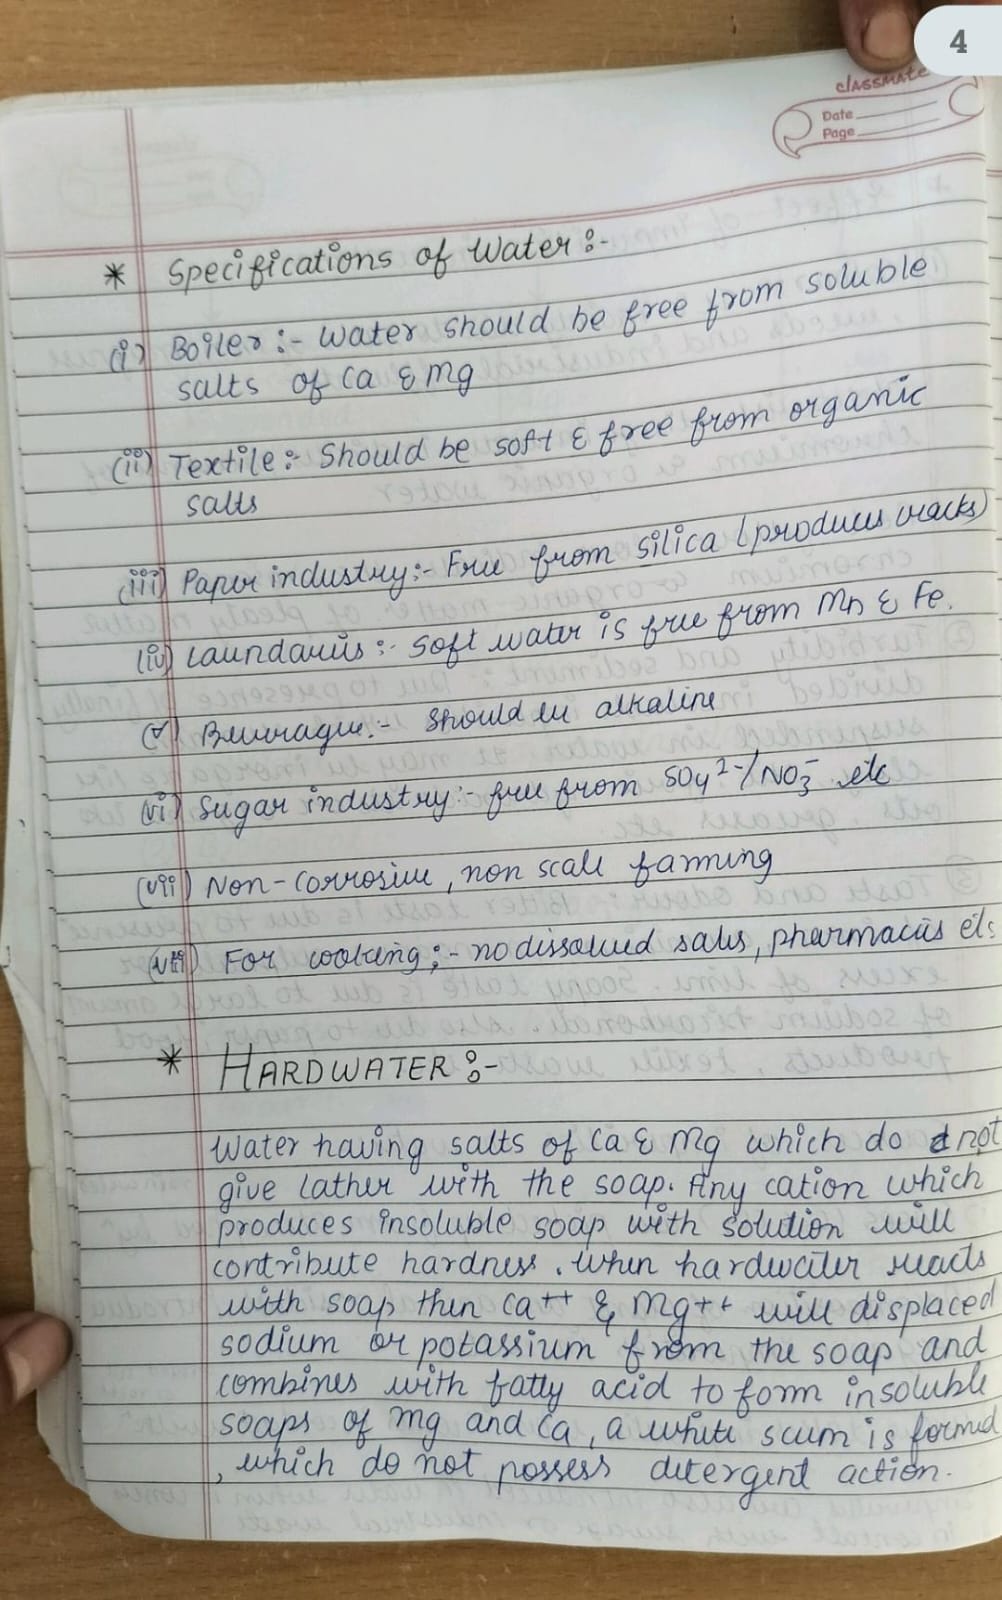 4
classmate
Date
Page
* Specifications of Water :-
(i) Boiler :- Water should be free from soluble
salts of Ca & Mg
(ii) Textile :- Should be soft & free from organic
salts
(iii) Paper industry :- Free from silica (produces cracks)
(iv) Laundaries :- Soft water is free from Mn & Fe.
(v) Beverages :- Should be alkaline
(vi) Sugar industry :- free from SO4 2-/NO3- etc
(vii) Non-corrosive, non scale farming
(viii) For cooking ;- no dissolved salts, pharmacies etc
* HARDWATER :-
Water having salts of Ca & Mg which do not
give lather with the soap. Any cation which
produces insoluble soap with solution will
contribute hardness. When hardwater reacts
with soap then Ca++ & Mg++ will displaced
sodium or potassium from the soap and
combines with fatty acid to form insoluble
soaps of Mg and Ca, a white scum is formed
, which do not possess detergent action.